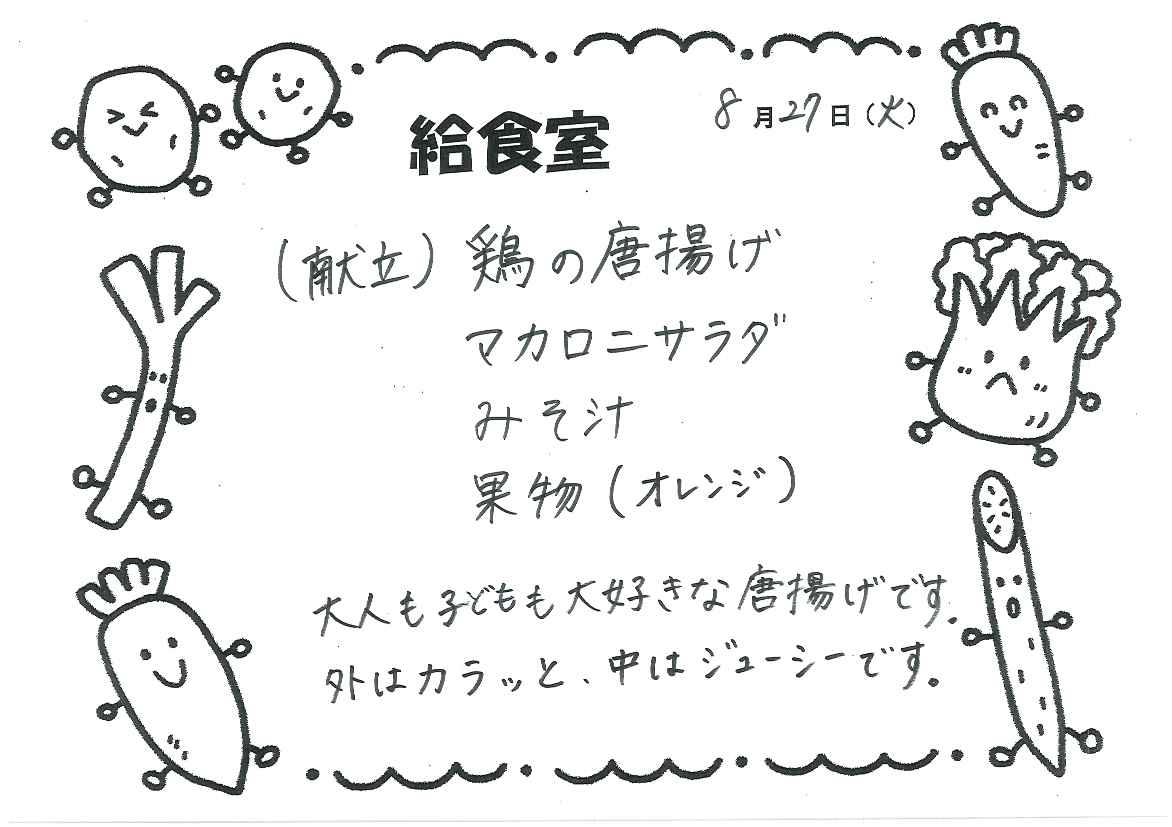 給食室
8月27日(火)
(献立)鶏の唐揚げ
マカロニサラダ
みそ汁
果物(オレンジ)
大人も子どもも大好きな唐揚げです.
外はカラッと、中はジューシーです。